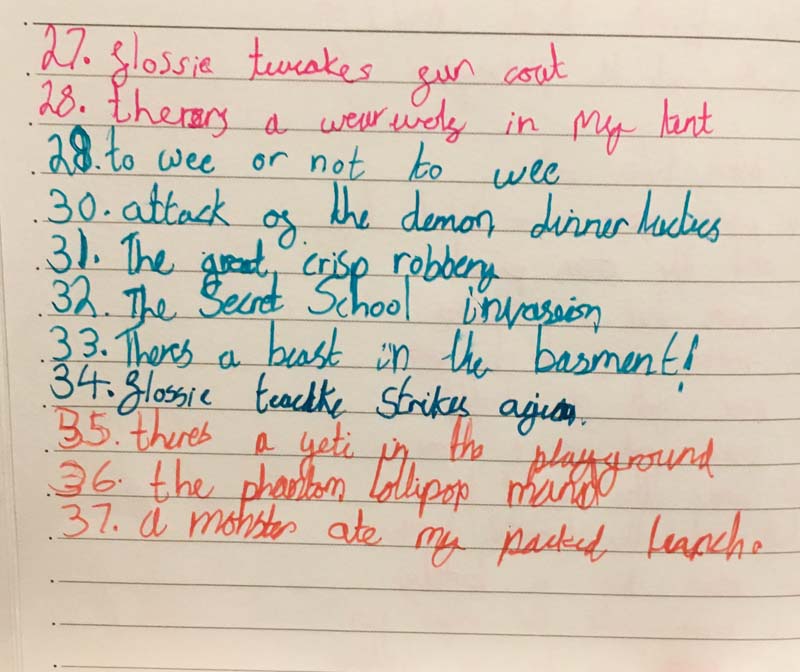 27. glossie tweakes gun coat
28. theres a wearwelg in my tent
29. to wee or not to wee
30. attack og the demon dinner ladies
31. The great crisp robbery
32. The Secret School invasion
33. Theres a beast in the basment!
34. glossie Strikes again.
35. theres a yeti in the playground
36. the phantom lollipop mano
37. a monster ate my packed leanch.